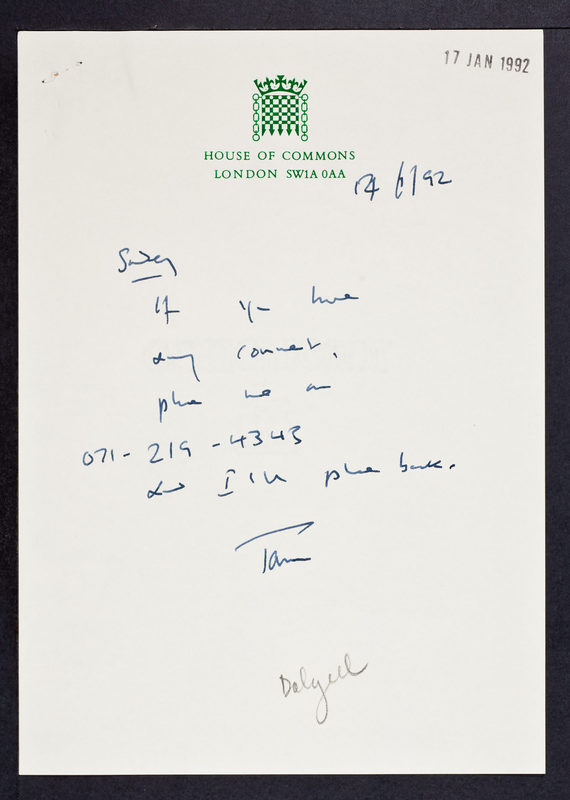 17 JAN 1992
HOUSE OF COMMONS
LONDON SW1A 0AA
/92
If you have
any comment,
phone me on
071-219-4343
and I'll phone back.
Tam
Dalyell